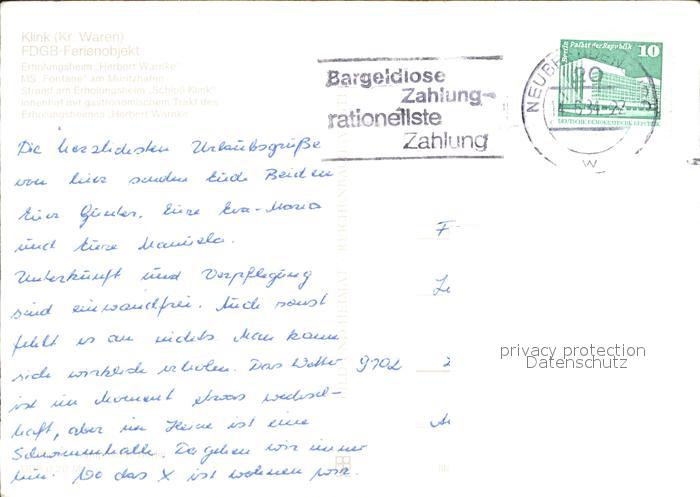 Klink (Kr. Waren)
FDGB-Ferienobjekt
Erholungsheim „Herbert Warnke"
MS „Fontane" am Müritzhafen
Strand am Erholungsheim „Schloß Klink"
Innenhof mit gastronomischem Trakt des
Erholungsheimes „Herbert Warnke"
Bargeldlose
Zahlung-
rationellste
Zahlung
NEUBRANDENBURG
20
Berlin Palast der Republik 10
DEUTSCHE DEMOKRATISCHE REPUBLIK
Die herzlichsten Urlaubsgrüße
von hier senden Euch Beiden
Euer Günter, Eure Eva-Maria
und Eure Manuela.
Unterkunft und Verpflegung
sind einwandfrei. Auch sonst
fehlt es an nichts. Man kann
sich wirklich erholen. Das Wetter
ist im Moment etwas wechsel-
haft, aber im Heim ist eine
Schwimmhalle. Da gehen wir immer
hin. Wo das X ist wohnen wir.
9102
privacy protection
Datenschutz